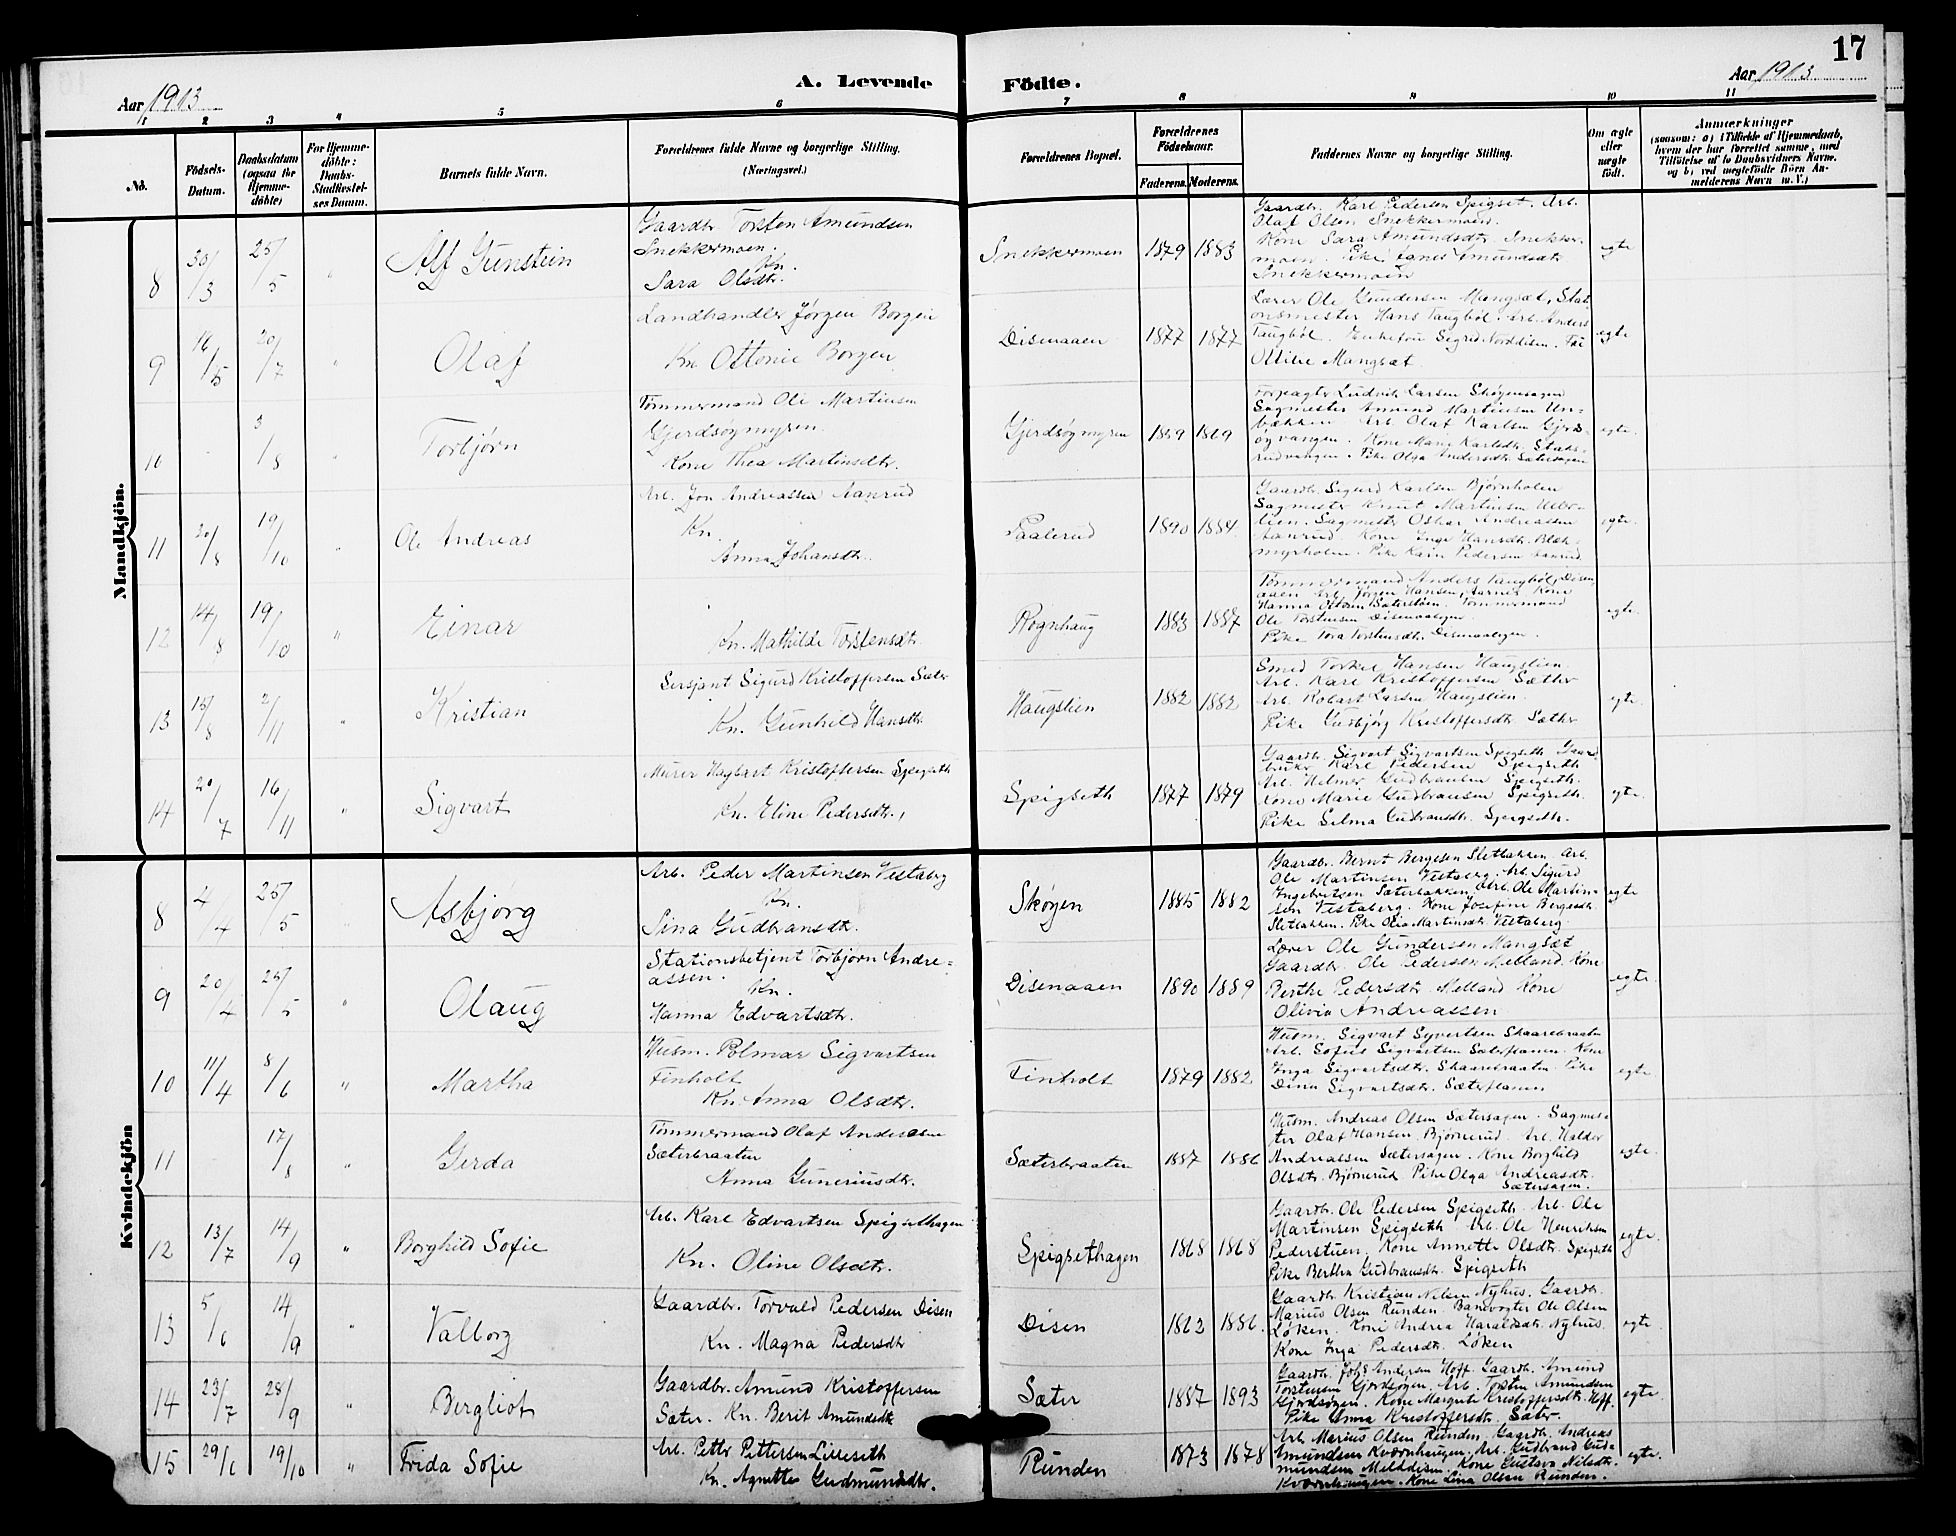 17
Aar 1913
A. Levende Födte.
Aar 1913
1 2 3 4 5 6 7 8 9 10 11
No.
Födsels-Datum.
Daabsdatum (ogsaa for Hjemme-döbte)
For Hjemme-döbte: Daabs-Stadfæstel-ses Datum.
Barnets fulde Navn.
Forældrenes fulde Navne og borgerlige Stilling. (Næringsvei.)
Forældrenes Bopæl.
Forældrenes Födselsaar.
Faderens. Moderens.
Faddernes Navne og borgerlige Stilling.
Om ægte eller uægte födt.
Anmærkninger
(saasom: a) i Tilfælde af Hjemmedaab,
hvem der har forrettet samme, med
Tilföielse af to Daabsvidners Navne.
og b) ved uægtefödte Börn An-
melderens Navn m. V.)
Mandkjön.
8 30/3 25/5 " Alf Gunstein
Gaardbr Torsten Amundsen
Snekkermoen.
Kn.
Sara Olsdtr.
Snekkermoen 1879 1883
Gaardbr. Karl Pedersen Spigset. Arb.
Olaf Olsen Snekkermoen.
Kone Sara Amundsdtr. Snekker-
moen. Pike Agnes Amundsdtr
Snekkermoen
egte
9 16/5 20/7 " Olaf
Landhandler Jørgen Borgen
Kn. Ottonie Borgen
Disenaaen 1877 1877
Lærer Ole Gundersen Mangset, Stat-
onsmester Hans Taugböl. Arb. Anders
Taugböl. Enkefru Sigrid Norddisen.
Ottilie Mangset
egte
10 3/8 " Torbjørn
Tømmermand Ole Martinsen
Gjerdsøgmyren.
Kone Thea Martinsdtr.
Gjerdsøgmyren 1869 1869
Forpagter Ludvik Larsen Skøgensagen
Sagmester Amund Martinsen
Arb. Olaf Karlsen
Kone Marie Karlsdtr.
Pike Olga Andersdtr. Sætersagen
egte.
11 20/8 19/10 " Ole Andreas
Arb. Jon Andreassen Aanrud
Kn.
Anna Johansdtr.
Paalerud 1890 1884
Gaardbr. Sigurd Karlsen Bjørnholen
Sagmester Knut Martinsen
Sagmester Oskar Andreassen
Aanrud. Kone Inga Hansdtr. Blek-
myrholen. Pike Karin Pedersen Aanrud
egte.
12 14/8 19/10 " Einar
Kn. Mathilde Torstensdtr.
Rognhaug 1883 1887
Tømmermand Anders Taugböl, Disen-
aaen Arb. Jørgen Hansen, Aarnes Kone
Hanna Ottesen Sæterstøen. Tømmermand
Ole Torstensen Disenaaegen.
Pike Tora Torstensdtr. Disenaaegen.
egte.
13 15/8 2/11 " Kristian
Sersjant Sigurd Kristoffersen Sæter
Kn. Gunhild Hansdtr.
Haugslien 1882 1882
Smed Torkel Hansen Haugslien.
Arb. Karl Kristoffersen Sæther
Arb. Robart Larsen Haugslien.
Pike Gudbjörg Kristoffersdtr. Sæthr
egte.
14 20/7 16/11 " Sigvart
Murer Hagbart Kristoffersen Spigseth
Kn. Eline Pedersdtr.,
Spigseth 1877 1879
Gaardbr. Sigvart Sigvartsen Spigseth Gaard-
bruker Karl Pedersen Spigseth
Arb. Helmer Gudbransen Spigseth.
Kone Marie Gudbransen Spigseth.
Pike Selma Gudbransdtr. Spigseth.
egte.
Kvindekjön
8 4/4 25/5 Asbjørg
Arb. Peder Martinsen Vestaberg
Kn.
Sina Gudbransdtr.
Skøgen 1885 1882
Gaardbr. Bernt Bergesen Sletbakken Arb.
Ole Martinsen Vestaberg. Arb. Sigurd
Ingebretsen Sæterbakken, Arb. Ole Martin-
sen Vestaberg. Kone Josefine Bergesdtr.
Sletbakken. Pike Olia Martinsdtr. Vestaberg
egte
9 20/4 25/5 " Olaug
Stationsbetjent Torbjørn Andre-
assen.
Kn.
Hanna Edvartsdtr.
Disenaaen 1890 1889
Lærer Ole Gundersen Mangset
Gaardbr. Ole Pedersen Melland. Kone
Berthe Pedersdtr. Melland Kone
Olivia Andreassen
egte.
10 11/4 8/6 " Martha
Husm. Polmar Sigvartsen
Finholt
Kn. Anna Olsdtr.
Finholt 1879 1882
Husm. Sigvart Syvertsen Skaarebraaten
Arb. Sofus Sigvartsen Sæterplassen. Kone
Inga Sigvartsdtr. Skaarebraaten. Pike
Dina Sigvartsdtr. Sæterplassen
egte
11 17/8 " Gerda
Tømmermand Olaf Andersen
Sæterbraaten
Anna Guneriusdtr.
Sæterbraaten 1887 1886
Husm. Andreas Olsen Sætersagen. Sagmes-
ter Olaf Hansen Bjørnerud. Arb. Haldor
Andreassen Sætersagen. Kone Borghild
Olsdtr. Bjørnerud Pike Olga Andreasdtr.
Sætersagen.
egte.
12 13/7 14/9 " Borghild Sofie
Arb. Karl Edvartsen Spigsethagen
Kn. Oline Olsdtr.
Spigsethagen 1868 1868
Gaardbr. Ole Pedersen Spigseth. Arb. Ole
Martinsen Spigseth Arb. Ole Henriksen
Pederstuen. Kone Annette Olsdtr. Spigseth
Pike Bertha Gudbransdtr. Spigseth
egte.
13 5/6 14/9 " Valborg
Gaardbr. Torvald Pedersen Disen
Kn. Magna Pedersdtr
Disen 1862 1886.
Gaardbr. Kristian Nilsen Nyhus. Gaardbr.
Marius Olsen Runden. Banevogter Ole Olsen
Løken. Kone Andrea Haraldsdtr. Nyhus.
Kone Inga Pedersdtr. Løken
egte.
14 23/7 28/9 " Bergliot
Gaardbr. Amund Kristoffersen
Sæter. Kn. Berit Amundsdtr
Sæter 1887 1893
Gaardbr. Johs Andersen Hoff. Gaardbr. Amund
Torstensen Gjerdsøgen. Arb. Torsten Amundsen
Gjerdsøgen. Kone Margrete Kristoffersdtr. Hoff.
Pike Anna Kristoffersdtr. Sæter.
egte.
15 29/6 19/10 " Frida Sofie
Arb. Petter Pettersen Lilleseth
Kn. Agnette Gudmundsdtr.
Runden 1873 1878
Arb. Marius Olsen Runden. Gaardbr. Andreas
Amundsen Kværnhaugen, Arb. Gudbrand Gud-
mundsen Melddisen. Kone Gustava Nilsdtr.
Kværnhaugen. Kone Lina Olsen Runden.
egte.